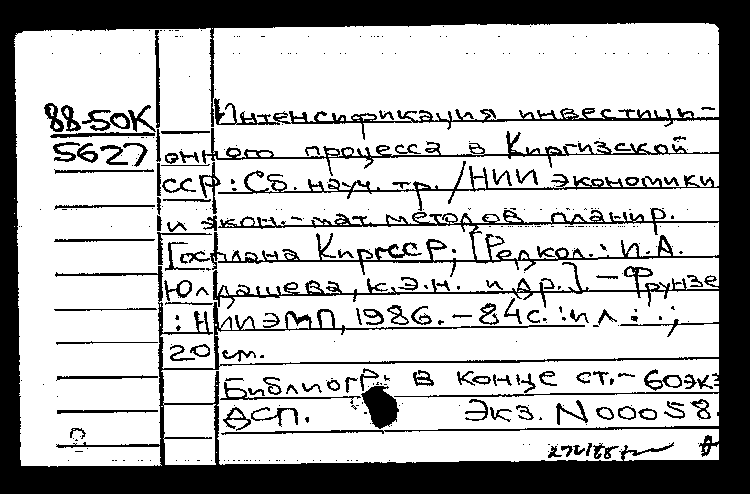 88-50К
5627
Интенсификация инвестици-
онного процесса в Киргизской
ССР: Сб. науч. тр. / НИИ экономики
и экон.-мат. методов планир.
Госплана КиргССР; [Редкол.: И.А.
Юлдашева, к.э.н. и др.]. – Фрунзе
: НИИЭМП, 1986. – 84с. : ил. ;
20 см.
Библиогр. в конце ст. – 60экз
ДСП. Экз. N00058.